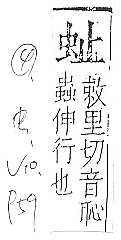 敕里切音恥
蟲伸行也
④.
虫.
V10.
P59